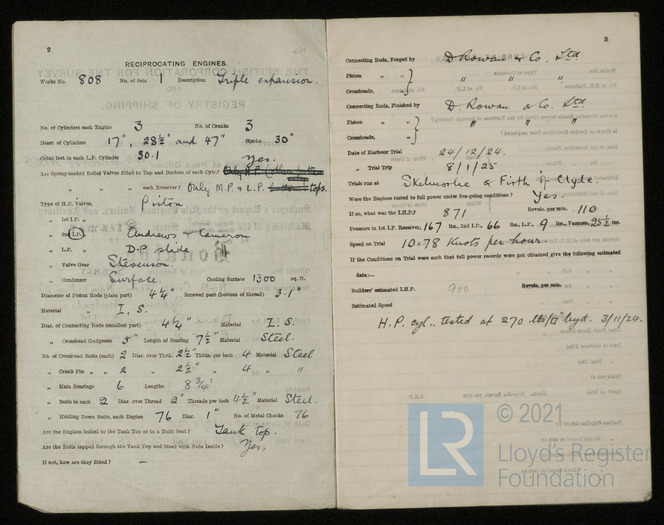 2
RECIPROCATING ENGINES.
Works No. 808 No. of Sets 1 Description Triple expansion.
No. of Cylinders each Engine 3 No. of Cranks 3
Diars. of Cylinders 17", 28½" and 47" Stroke 30"
Cubic feet in each L.P. Cylinder 30.1
Are Spring-loaded Relief Valves fitted to Top and Bottom of each Cylr.? Yes.
" " each Receiver? Only M.P. & L.P. tops.
Type of H.P. Valves, Piston
" 1st I.P. "
" 2nd I.P. " Andrews & Cameron
" L.P. " D-P slide
" Valve Gear Stevenson.
" Condenser Surface. Cooling Surface 1300 sq. ft.
Diameter of Piston Rods (plain part) 4¼" Screwed part (bottom of thread) 3.1"
Material " I.S.
Diar. of Connecting Rods (smallest part) 4¼" Material I.S.
" Crosshead Gudgeons 5" Length of Bearing 7½" Material Steel.
No. of Crosshead Bolts (each) 2 Diar. over Thrd. 2½" Thrds. per inch 4 Material Steel
" Crank Pin " " 2 " 2½" " 4 " "
" Main Bearings 6 Lengths 8¾"
" Bolts in each 2 Diar. over Thread 2" Threads per inch 4½" Material Steel.
" Holding Down Bolts, each Engine 76 Diar. 1" No. of Metal Chocks 76
Are the Engines bolted to the Tank Top or to a Built Seat? Tank top.
Are the Bolts tapped through the Tank Top and fitted with Nuts Inside? Yes.
If not, how are they fitted? —
3
Connecting Rods, Forged by D. Rowan & Co. Ltd
Piston " " " " "
Crossheads, "
Connecting Rods, Finished by D. Rowan & Co. Ltd.
Piston " " " "
Crossheads, "
Date of Harbour Trial 24/12/24.
" Trial Trip 8/1/25
Trials run at Skelmorlie & Firth of Clyde.
Were the Engines tested to full power under Sea-going conditions? Yes.
If so, what was the I.H.P.? 871 Revols. per min. 110
Pressure in 1st I.P. Receiver, 167 lbs., 2nd I.P., 66 lbs., L.P., 9 lbs., Vacuum, 25½ ins.
Speed on Trial 10.78 Knots per hour
If the Conditions on Trial were such that full power records were not obtained give the following estimated
data:—
Builders' estimated I.H.P. 900 Revols. per min.
Estimated Speed
H.P. cyl. tested at 270 lbs/□" hyd. 3/11/24.
© 2021
LR
Lloyd's Register
Foundation